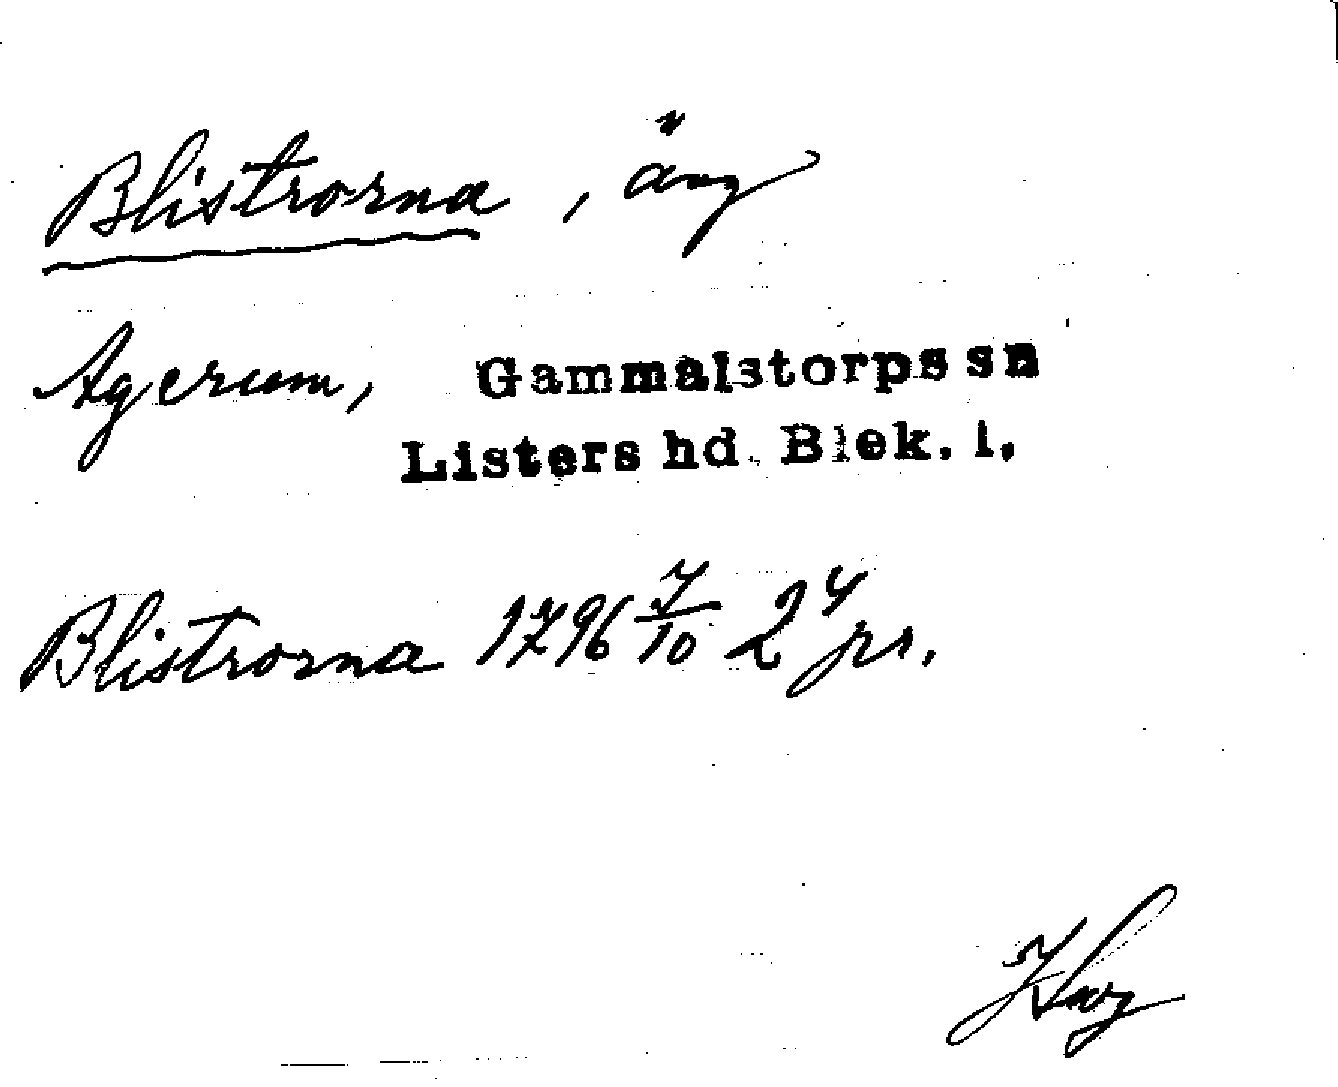 Blistrorna, äng
Agerum, Gammalstorps sn
Listers hd. Blek. l.
Blistrorna 1796 7/10 24 pr.